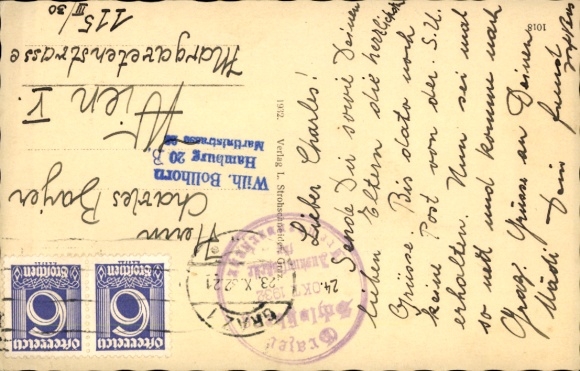 1018
Lieber Charles!
Sende Dir sowie Deinen
lieben Eltern die herzlichsten
Grüsse. Bis dato noch
keine Post von der S.U.
erhalten. Nun sei mal
so nett und komme nach
Graz! Grüsse an Deinen
Mädi Dein Freund
1932. Verlag L. Strohschneider, Graz
Herrn
Charles Bayer
Wien V.
Margaretenstrasse
115/III/30
Wilh. Bollhorn
Hamburg 20 B
Martinistrasse
GRAZ 1
23.X.32 21
24. OKT. 1932
Grazer
Schloßberg
Aussichts
6 6
Groschen Groschen
Österreich Österreich